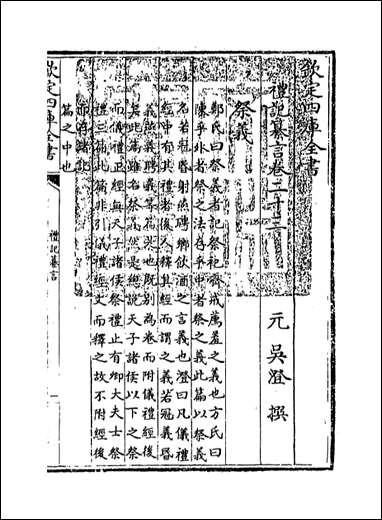 欽定四庫全書
禮記纂言卷二十三
元 吳澄 撰
祭義
鄭氏曰祭義者記祭祀齊戒薦羞之義也方氏曰
陳乎外者祭之法存乎中者祭之義此篇以祭義
名若冠昏射燕聘鄉飲酒之言義也澄曰凡儀禮
經中有其禮者後人釋其經而謂之義若冠義昏
義燕義聘義等篇是也既別為卷而附儀禮經後
矣此篇雖名祭義然是總說天子諸侯以下之祭
而儀禮正經無天子諸侯祭禮止有卿大夫士祭
禮三篇此篇非引儀禮經文而釋之故不附經後
而諸記
篇之中也
欽定四庫全書
禮記纂言
一